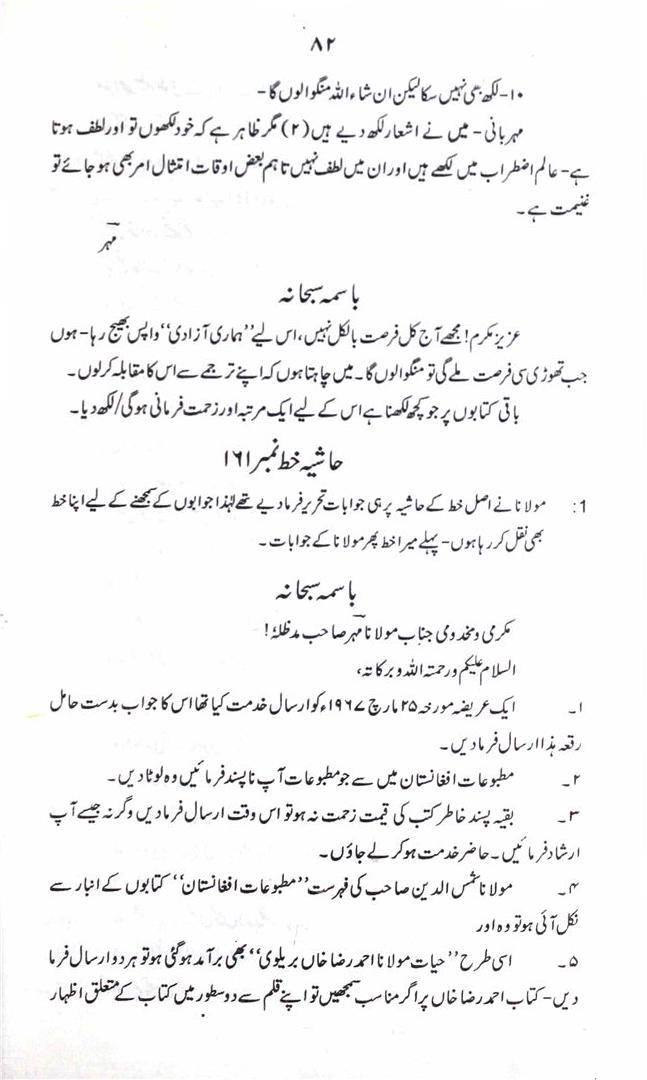 ۸۲
۱۰- لکھ بھی نہیں سکا لیکن ان شاء اللہ منگوا لوں گا-
مہربانی - میں نے اشعار لکھ دیے ہیں (۲) مگر ظاہر ہے کہ خود لکھوں تو اور لطف ہوتا
ہے- عالم اضطراب میں لکھے ہیں اور ان میں لطف نہیں تاہم بعض اوقات امتثال امر بھی ہو جائے تو
غنیمت ہے۔
مہر
باسمہ سبحانہ
عزیز مکرم! مجھے آج کل فرصت بالکل نہیں، اس لیے "ہماری آزادی" واپس بھیج رہا- ہوں
جب تھوڑی سی فرصت ملے گی تو منگوا لوں گا۔ میں چاہتا ہوں کہ اپنے ترجمے سے اس کا مقابلہ کر لوں۔
باقی کتابوں پر جو کچھ لکھنا ہے اس کے لیے ایک مرتبہ اور زحمت فرمانی ہوگی/لکھ دیا۔
حاشیہ خط نمبر ۱۶۱
1: مولانا نے اصل خط کے حاشیہ پر ہی جوابات تحریر فرما دیے تھے لہٰذا جوابوں کے سمجھنے کے لیے اپنا خط
بھی نقل کر رہا ہوں- پہلے میرا خط پھر مولانا کے جوابات۔
باسمہ سبحانہ
مکرمی و مخدومی جناب مولانا مہر صاحب مدظلہٗ!
السلام علیکم ورحمتہ اللہ وبرکاتہ،
۱۔ ایک عریضہ مورخہ ۲۵ مارچ ۱۹۶۷ء کو ارسال خدمت کیا تھا اس کا جواب بدست حامل
رقعہ ہذا ارسال فرما دیں۔
۲۔ مطبوعات افغانستان میں سے جو مطبوعات آپ ناپسند فرمائیں وہ لوٹا دیں۔
۳۔ بقیہ پسند خاطر کتب کی قیمت زحمت نہ ہو تو اس وقت ارسال فرما دیں وگرنہ جیسے آپ
ارشاد فرمائیں۔ حاضر خدمت ہو کر لے جاؤں۔
۴۔ مولانا شمس الدین صاحب کی فہرست "مطبوعات افغانستان" کتابوں کے انبار سے
نکل آئی ہو تو وہ اور
۵۔ اسی طرح "حیات مولانا احمد رضا خاں بریلوی" بھی برآمد ہوگئی ہو تو ہر دو ارسال فرما
دیں- کتاب احمد رضا خاں پر اگر مناسب سمجھیں تو اپنے قلم سے دو سطور میں کتاب کے متعلق اظہار